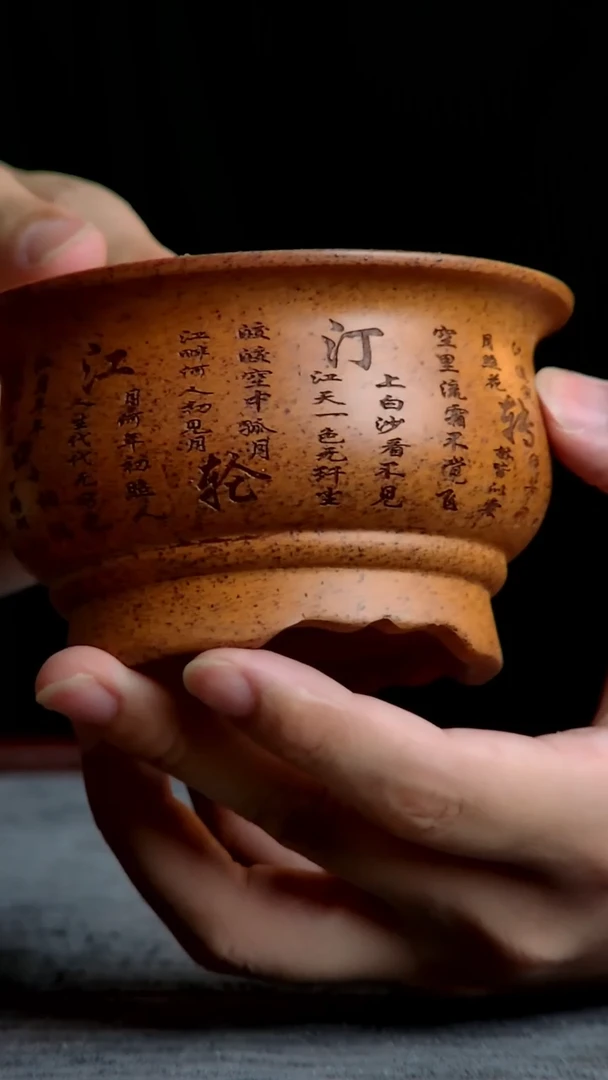 月照花
林皆似霰
空里流霜不觉飞
汀上白沙看不见
江天一色无纤尘
皎皎空中孤月轮
江畔何人初见月
江月何年初照人
人生代代无穷已